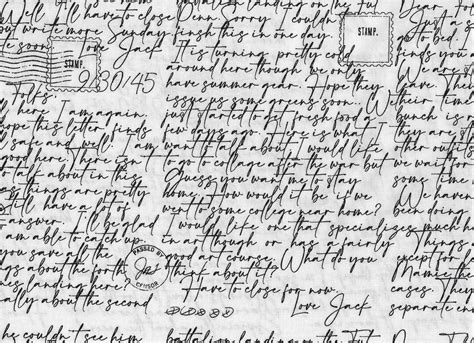 have to close
write more Sunday
soon. Love Jack
STAMP.
9/30/45
Folks.
here I am again
hope this letter finds
safe and well. I am
good here. There isn't
talk about in this
things are pretty
still have a lot of
answer. I'll be glad
am able to catch up
in your saving the
about the forth
landing here?
about the second
PASSED BY
he couldn't see him
Sorry I couldn't
finish this in one day.
It is turning pretty cold
around here though we only
have summer gear. Hope they
issue us some greens soon..
just started to get fresh food a
few days ago. Here is what I
want to talk about. I would like
to go to collage after the war but
Guess you want me to stay
home. How would it be if we
went to some college near home?
I would like one that specializes
in art though or has a fairly
good art course. What do you
think about it?
Have to close for now.
Love Jack
battalion landing on the
but
STAMP.
Dear
Just a
to bed.
finds you
We are
have
their time
bunch is a
they are
other outfits
we wait for
some time
been doing
much
Things
except for
Mamie the
cases. They
separate